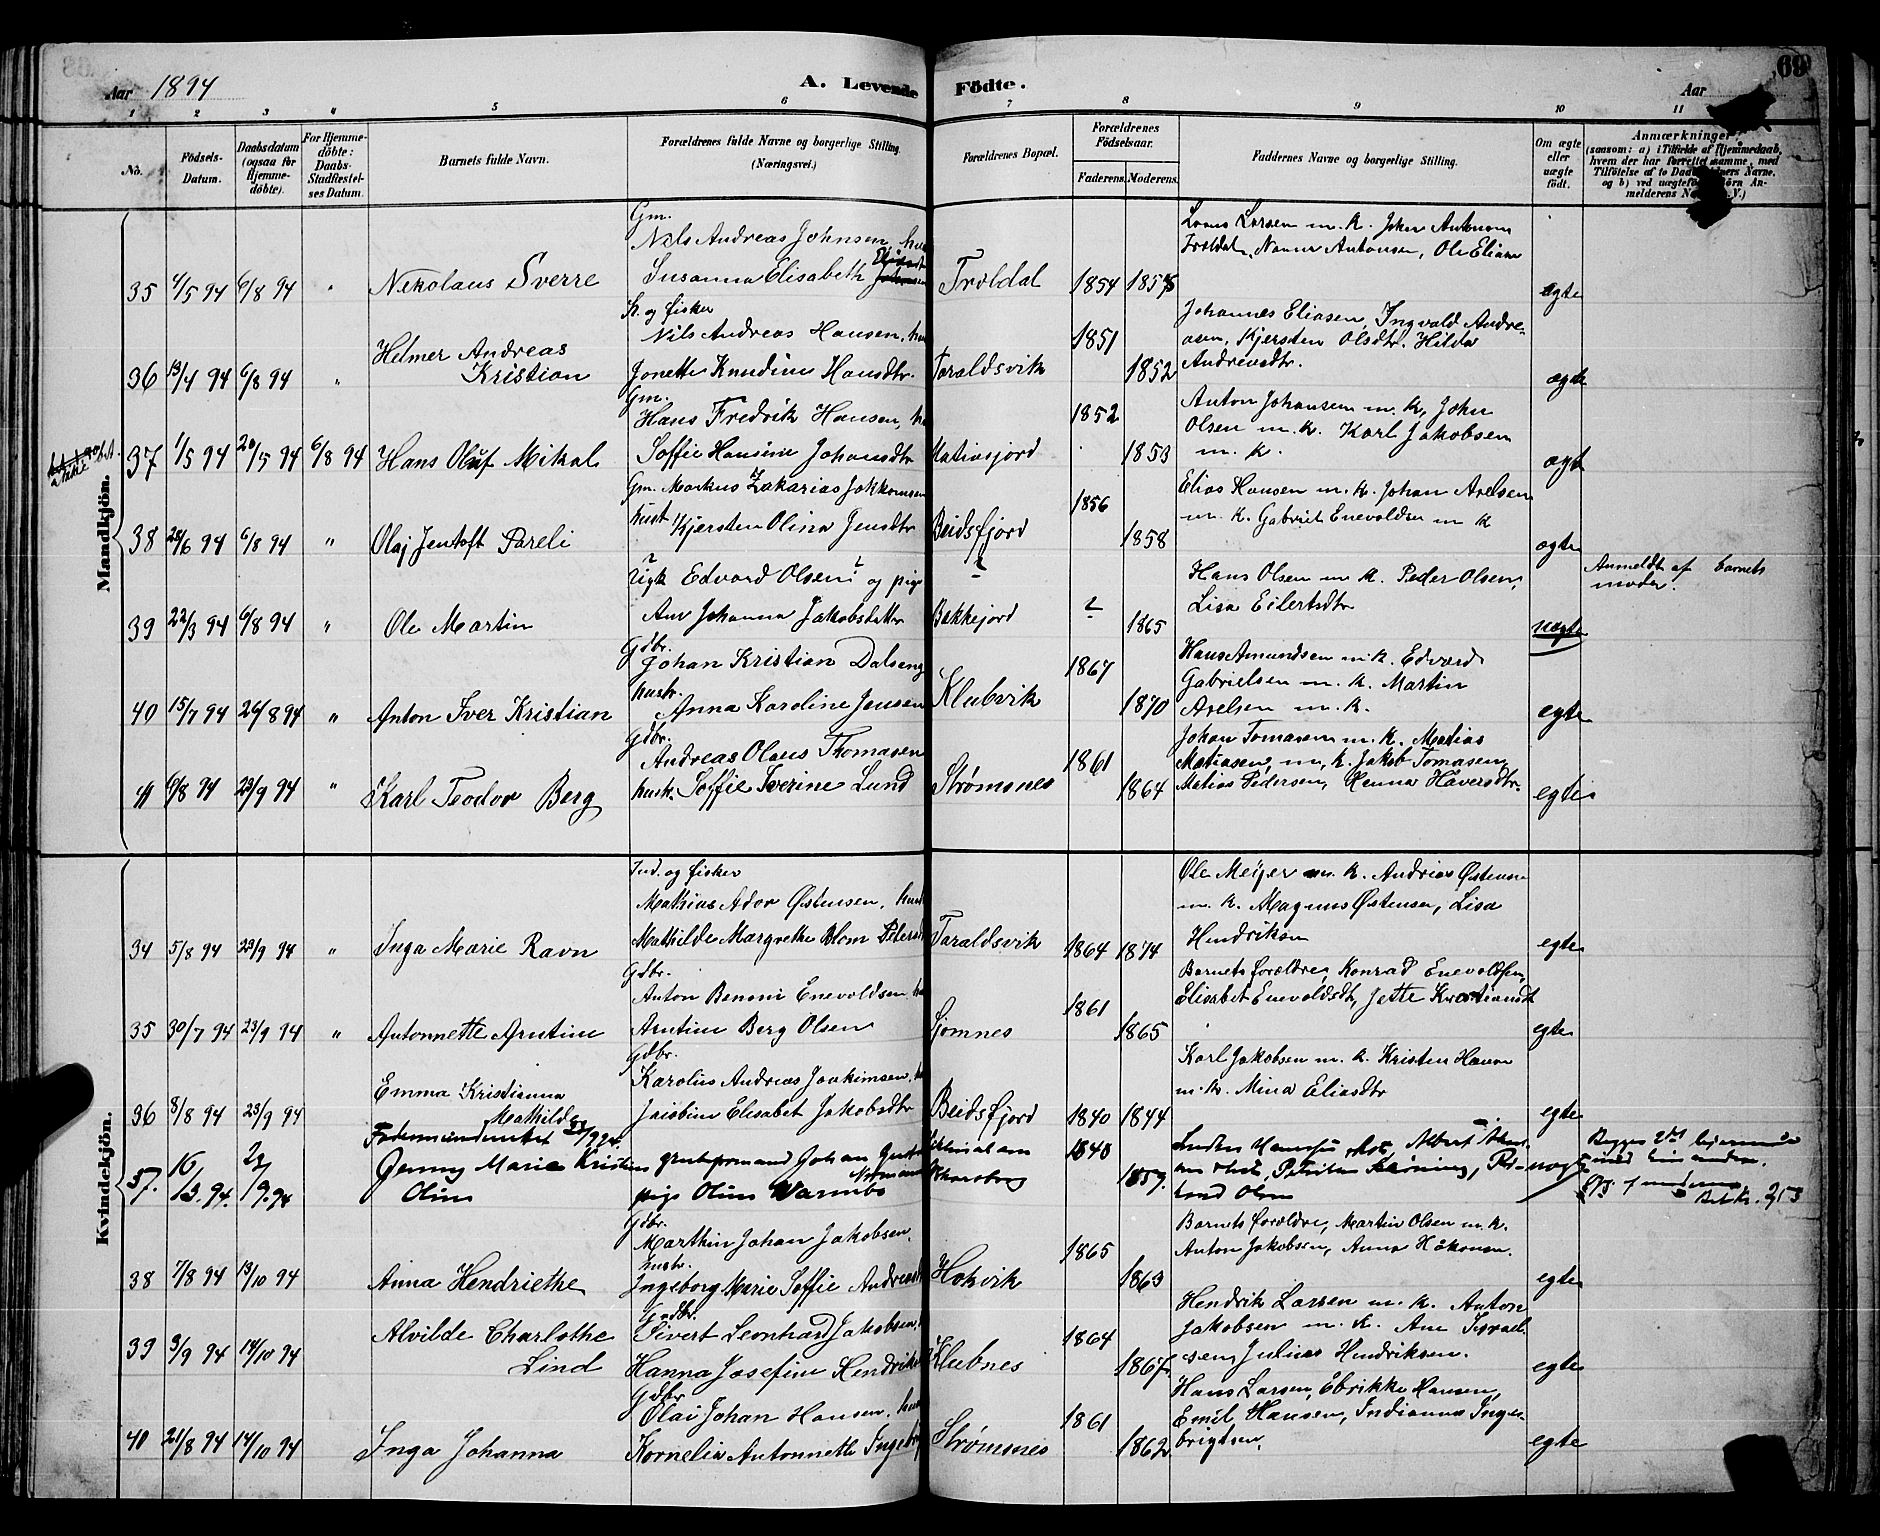 Aar 1894
A. Levende Födte.
Aar
69
1 2 3 4 5 6 7 8 9 10 11
No.
Födsels-Datum.
Daabsdatum (ogsaa for Hjemme-döbte).
For Hjemme-döbte: Daabs-Stadfæstel-ses Datum.
Barnets fulde Navn.
Forældrenes fulde Navne og borgerlige Stilling. (Næringsvei.)
Forældrenes Bopæl.
Forældrenes Födselsaar.
Faderens. Moderens.
Faddernes Navne og borgerlige Stilling.
Om ægte eller uægte födt.
Anmærkninger
(saasom: a) i Tilfælde af Hjemmedaab,
hvem der har forrettet samme, med
Tilföielse af to Daabsvidners Navne,
og b) ved uægtefödte Börn An-
melderens Navn.)
Mandkjön.
Gm.
Nils Andreas Johnsen, hu
35 4/5 94 6/8 94 " Nikolaus Sverre Susanna Elisabeth Troldal 1854 1857
Lorns Larsen m. k. Johan Antonsen
Troldal, Nanna Antonsen, Ole Eliasen
ægte
In. og fisker
Nils Andreas Hansen, hu
36 13/4 94 6/8 94 " Helmer Andreas
Kristian Jonette Knudine Hansdtr. Taraldsvik 1851 1852
Johannes Eliasen, Ingvald Andre-
asen, Kjersten Olsdtr. Hilda
Andreasdtr.
ægte
Gm.
Hans Fredrik Hansen, hu
37 1/5 94 20/5 94 6/8 94 Hans Oluf Mikal Soffie Hansine Johansdtr 1852 1853
Anton Johansen m. k, John
Olsen m. k. Karl Jakobsen
m. k.
ægt
Gm. Markus Zakarias Jokkumsen
hust. Kjersten Olina Jensdtr
38 28/6 94 6/8 94 " Olaj Jentoft Pareli Beidsfjord 1856 1858
Elias Hansen m. k. Johan Axelsen
m. k. Gabriel Enevoldsen m k
ægte
Ugk Edvard Olsen? og pige
Ane Johanna Jakobsdatter
39 22/3 94 6/8 94 " Ole Martin Bakkejord ? 1865
Hans Olsen m k. Peder Olsen,
Lisa Eilertsdtr
uægte
Anmeldt af barnets
moder.
Gdbr.
Johan Kristian Dalseng
hustr. Anna Karoline Jensen
40 15/7 94 26/8 94 " Anton Iver Kristian Klubvik 1867 1870
Hans Amundsen m. k. Edvard
Gabrielsen m. k. Martin
Axelsen m. k.
egte
Gdbr.
Andreas Olaus Thomasen
hust. Soffie Sverine Lund
41 6/8 94 23/9 94 " Karl Teodor Berg Strømsnes 1861 1864
Johan Tomasen m. k. Matias
Matiasen, m. k. Jakob Tomasen,
Matias Pedersen, Henna Haversdtr.
egte
Kvindekjön.
Ind. og fisker
Mathias Ador Østensen, hust
Mathilde Margrethe Blom
34 5/8 94 23/9 94 " Inga Marie Ravn Taraldsvik 1864 1874
Ole Meijer m. k. Andrias Østensen
m. k. Magnus Østensen, Lisa
Hendriksen
egte
Gdbr.
Anton Benoni Enevoldsen, hu
Arntine Berg Olsen
35 30/7 94 23/9 94 " Antonnette Arntine Sjomnes 1861 1865
Barnets forældre, Konrad Enevoldsen,
Elisabet Enevoldsdt, Jette
egte
Gdbr.
Karolius Andreas Joakimsen, hu
Elisabet Jakobsdtr
36 8/8 94 23/9 94 Emma Kristianna
Mathilde Beidsfjord 1840 1844
Karl Jakobsen m. k. Kristen Hansen
m. k. Mina Eliasdtr
egte
37. 16/3. 94. 23/9. 94 Jenny Marie
Oline
Johan
pige Oline Warmbo
1840 1857.
Albert
Olsen
uægte
253
Gdbr.
Marthin Johan Jakobsen,
hustr.
Ingeborg Marie Soffie
38 7/8 94 13/10 94 Anna Hendriethe Hokvik 1865 1863
Barnets forældre, Martin Olsen m. k.
Anton Jakobsen, Anna Håkonsen.
egte
Gdbr.
Sivert Leonhard Jakobsen,
Hanna Josefine
39 3/9 94 14/10 94 Alvilde Charlothe
Lind Klubnes 1864 1867.
Hendrik Larsen m. k. Anton
Jakobsen m. k. Ane Israel-
sen, Julius Hendriksen.
egte
Gdbr
Olai Johan Hansen, hust
Kornelia Antonnette
40 21/8 94 14/10 94 Inga Johanna Strømsnes 1861 1862
Hans Larsen, Ebrikke Hansen,
Emil Hansen, Indianna Inge-
brigtsen,
egte